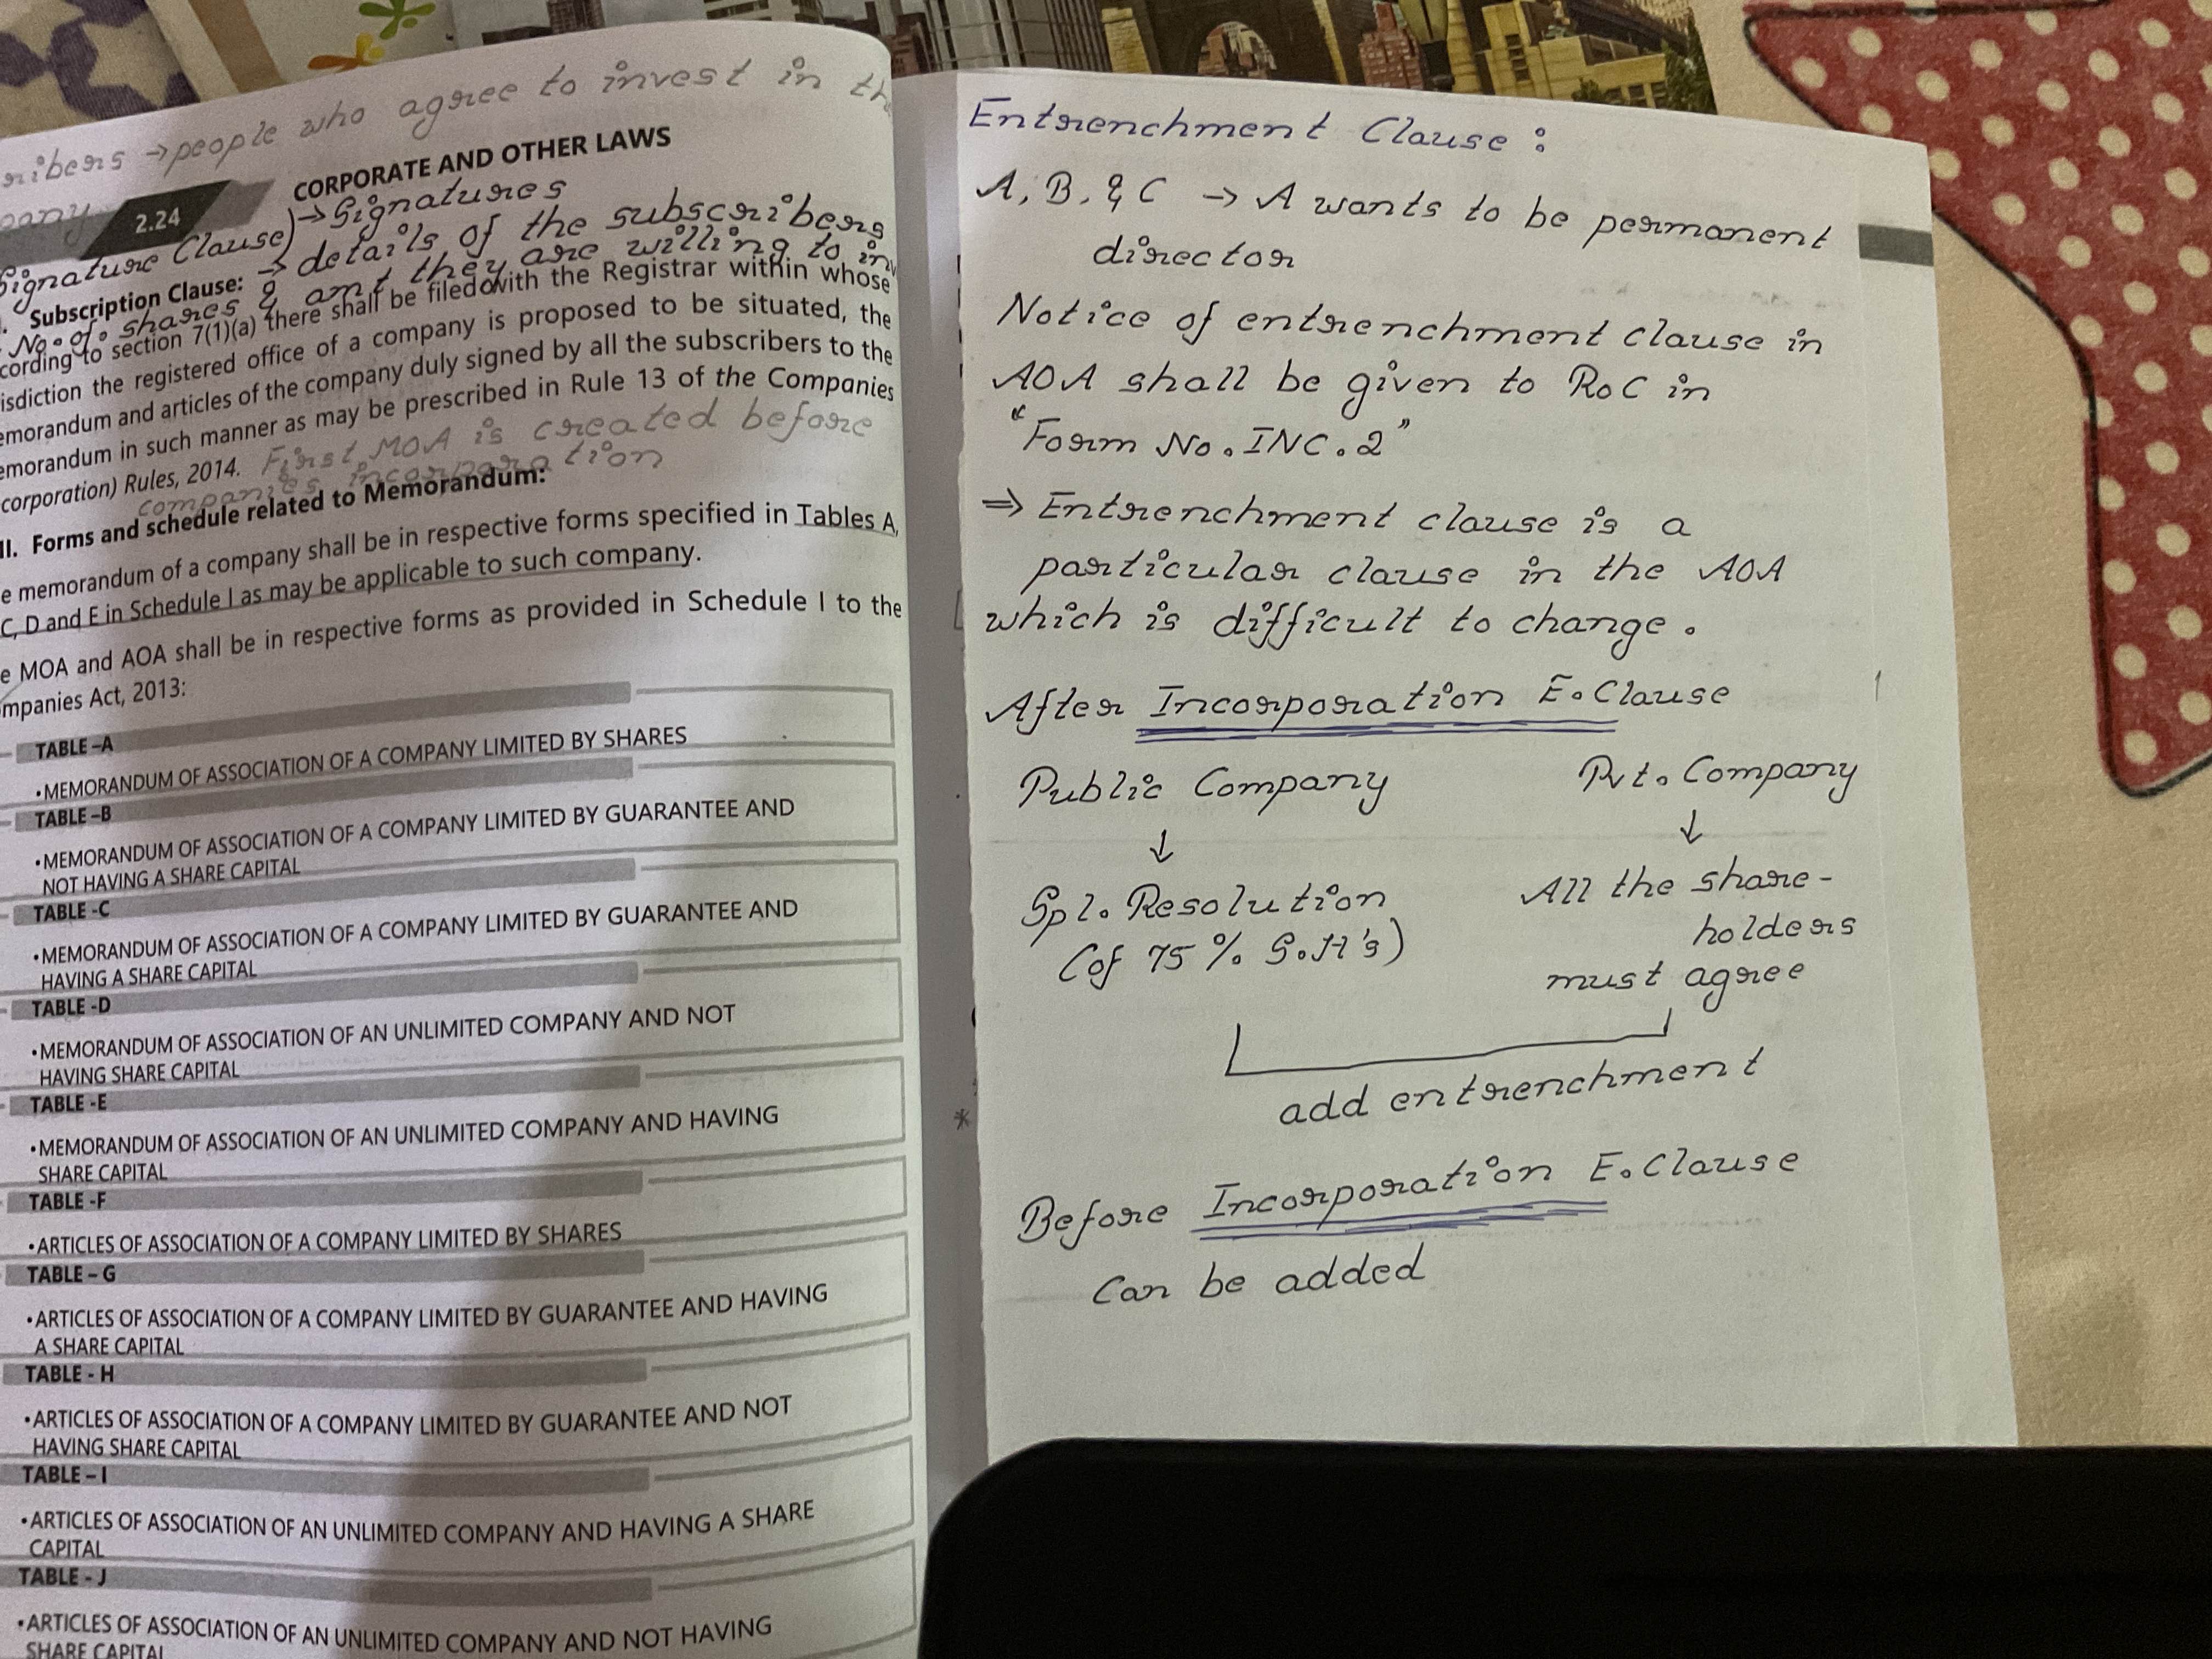 people who agree to invest in
CORPORATE AND OTHER LAWS
2.24
Signature Clause) → Signatures
→ details of the subscribers
Subscription Clause:
No. of shares & amt they are willing to
to section 7(1)(a) there shall be filed with the Registrar within whose
the registered office of a company is proposed to be situated, the
and articles of the company duly signed by all the subscribers to the
in such manner as may be prescribed in Rule 13 of the Companies
Rules, 2014. First MOA is created before
companies incorporation
II. Forms and schedule related to Memorandum:
e memorandum of a company shall be in respective forms specified in Tables A,
C, D and E in Schedule I as may be applicable to such company.
e MOA and AOA shall be in respective forms as provided in Schedule I to the
mpanies Act, 2013:
TABLE –A
•MEMORANDUM OF ASSOCIATION OF A COMPANY LIMITED BY SHARES
TABLE –B
•MEMORANDUM OF ASSOCIATION OF A COMPANY LIMITED BY GUARANTEE AND
NOT HAVING A SHARE CAPITAL
TABLE -C
•MEMORANDUM OF ASSOCIATION OF A COMPANY LIMITED BY GUARANTEE AND
HAVING A SHARE CAPITAL
TABLE -D
•MEMORANDUM OF ASSOCIATION OF AN UNLIMITED COMPANY AND NOT
HAVING SHARE CAPITAL
TABLE -E
•MEMORANDUM OF ASSOCIATION OF AN UNLIMITED COMPANY AND HAVING
SHARE CAPITAL
TABLE -F
•ARTICLES OF ASSOCIATION OF A COMPANY LIMITED BY SHARES
TABLE – G
•ARTICLES OF ASSOCIATION OF A COMPANY LIMITED BY GUARANTEE AND HAVING
A SHARE CAPITAL
TABLE - H
•ARTICLES OF ASSOCIATION OF A COMPANY LIMITED BY GUARANTEE AND NOT
HAVING SHARE CAPITAL
TABLE – I
•ARTICLES OF ASSOCIATION OF AN UNLIMITED COMPANY AND HAVING A SHARE
CAPITAL
TABLE - J
•ARTICLES OF ASSOCIATION OF AN UNLIMITED COMPANY AND NOT HAVING
SHARE CAPITAL
Entrenchment Clause :
A, B, & C → A wants to be permanent
director
Notice of entrenchment clause in
AOA shall be given to RoC in
"Form No. INC. 2"
⇒ Entrenchment clause is a
particular clause in the AOA
which is difficult to change.
After Incorporation E. Clause
Public Company Pvt. Company
↓ ↓
Spl. Resolution All the share-
(of 75 % S.H's) holders
must agree
add entrenchment
Before Incorporation E. Clause
Can be added